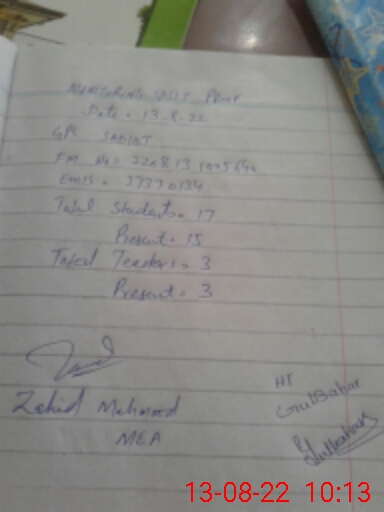 MONITORING VISIT Proof
Date = 13-8-22
GPS SADIOT
EMIS = 37370134
Total Students = 17
Present = 15
Total Teachers = 3
Present = 3
Zahid Mahmood
MEA
HT
GulBahar
Gulbahar
13-08-22 10:13